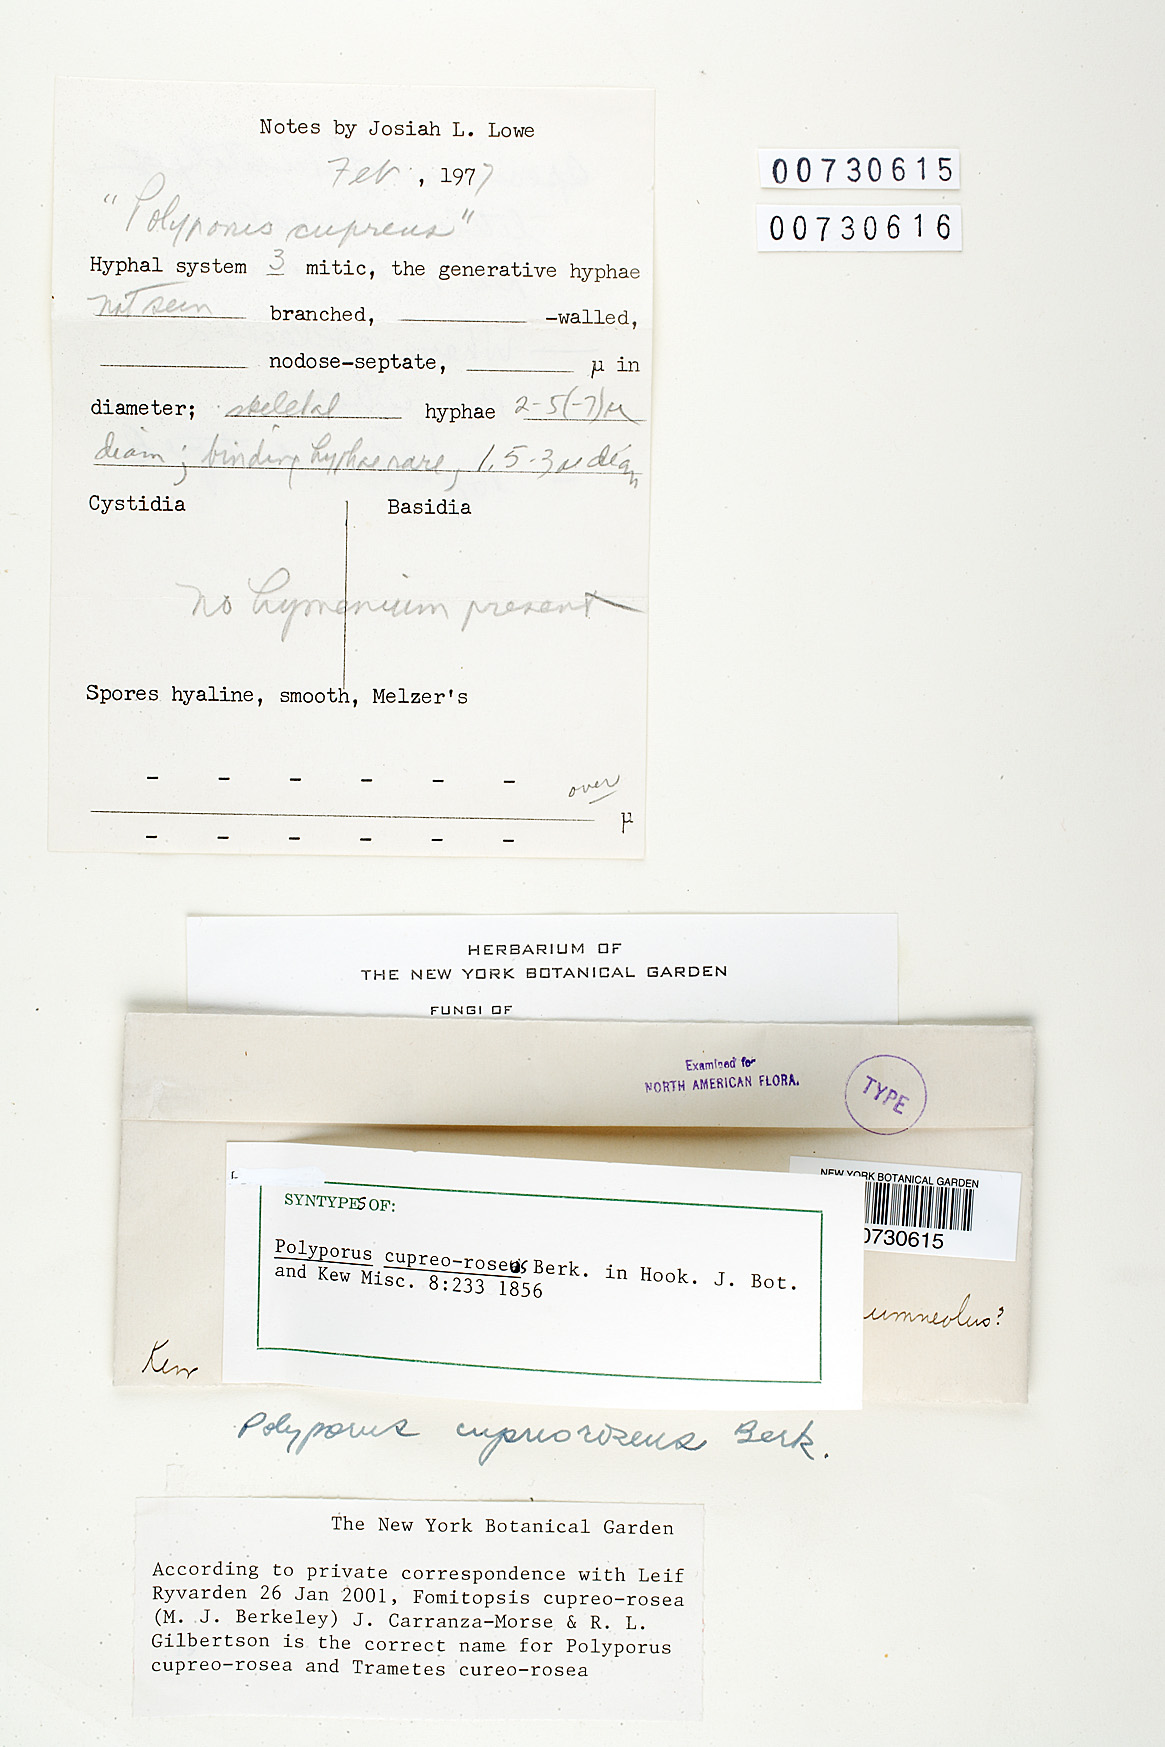 Notes by Josiah L. Lowe
Feb., 1977
"Polyporus cupreus"
Hyphal system 3 mitic, the generative hyphae
not seen branched, -walled,
nodose-septate, µ in
diameter; skeletal hyphae 2-5(-7)µ
diam; binding hyphae rare, 1.5-3µ diam
Cystidia Basidia
no hymenium present
Spores hyaline, smooth, Melzer's
- - - - - -
over
µ
- - - - - -
00730615
00730616
HERBARIUM OF
THE NEW YORK BOTANICAL GARDEN
FUNGI OF
Examined for
NORTH AMERICAN FLORA.
TYPE
NEW YORK BOTANICAL GARDEN
0730615
SYNTYPES OF:
Polyporus cupreo-roseus Berk. in Hook. J. Bot.
and Kew Misc. 8:233 1856
umneolus?
Kew
Polyporus cupreoroseus Berk.
The New York Botanical Garden
According to private correspondence with Leif
Ryvarden 26 Jan 2001, Fomitopsis cupreo-rosea
(M. J. Berkeley) J. Carranza-Morse & R. L.
Gilbertson is the correct name for Polyporus
cupreo-rosea and Trametes cureo-rosea